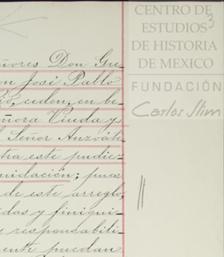 CENTRO DE
ESTUDIOS
DE HISTORIA
DE MÉXICO
FUNDACIÓN
Carlos Slim
3
ñores Don Gre
on José Pablo
ceden, en be
ñora Viuda y
l Señor Anzoát
tra este pudie
uidación; pues
de este arreglo,
das y finiqui
responsabili
ente puedan